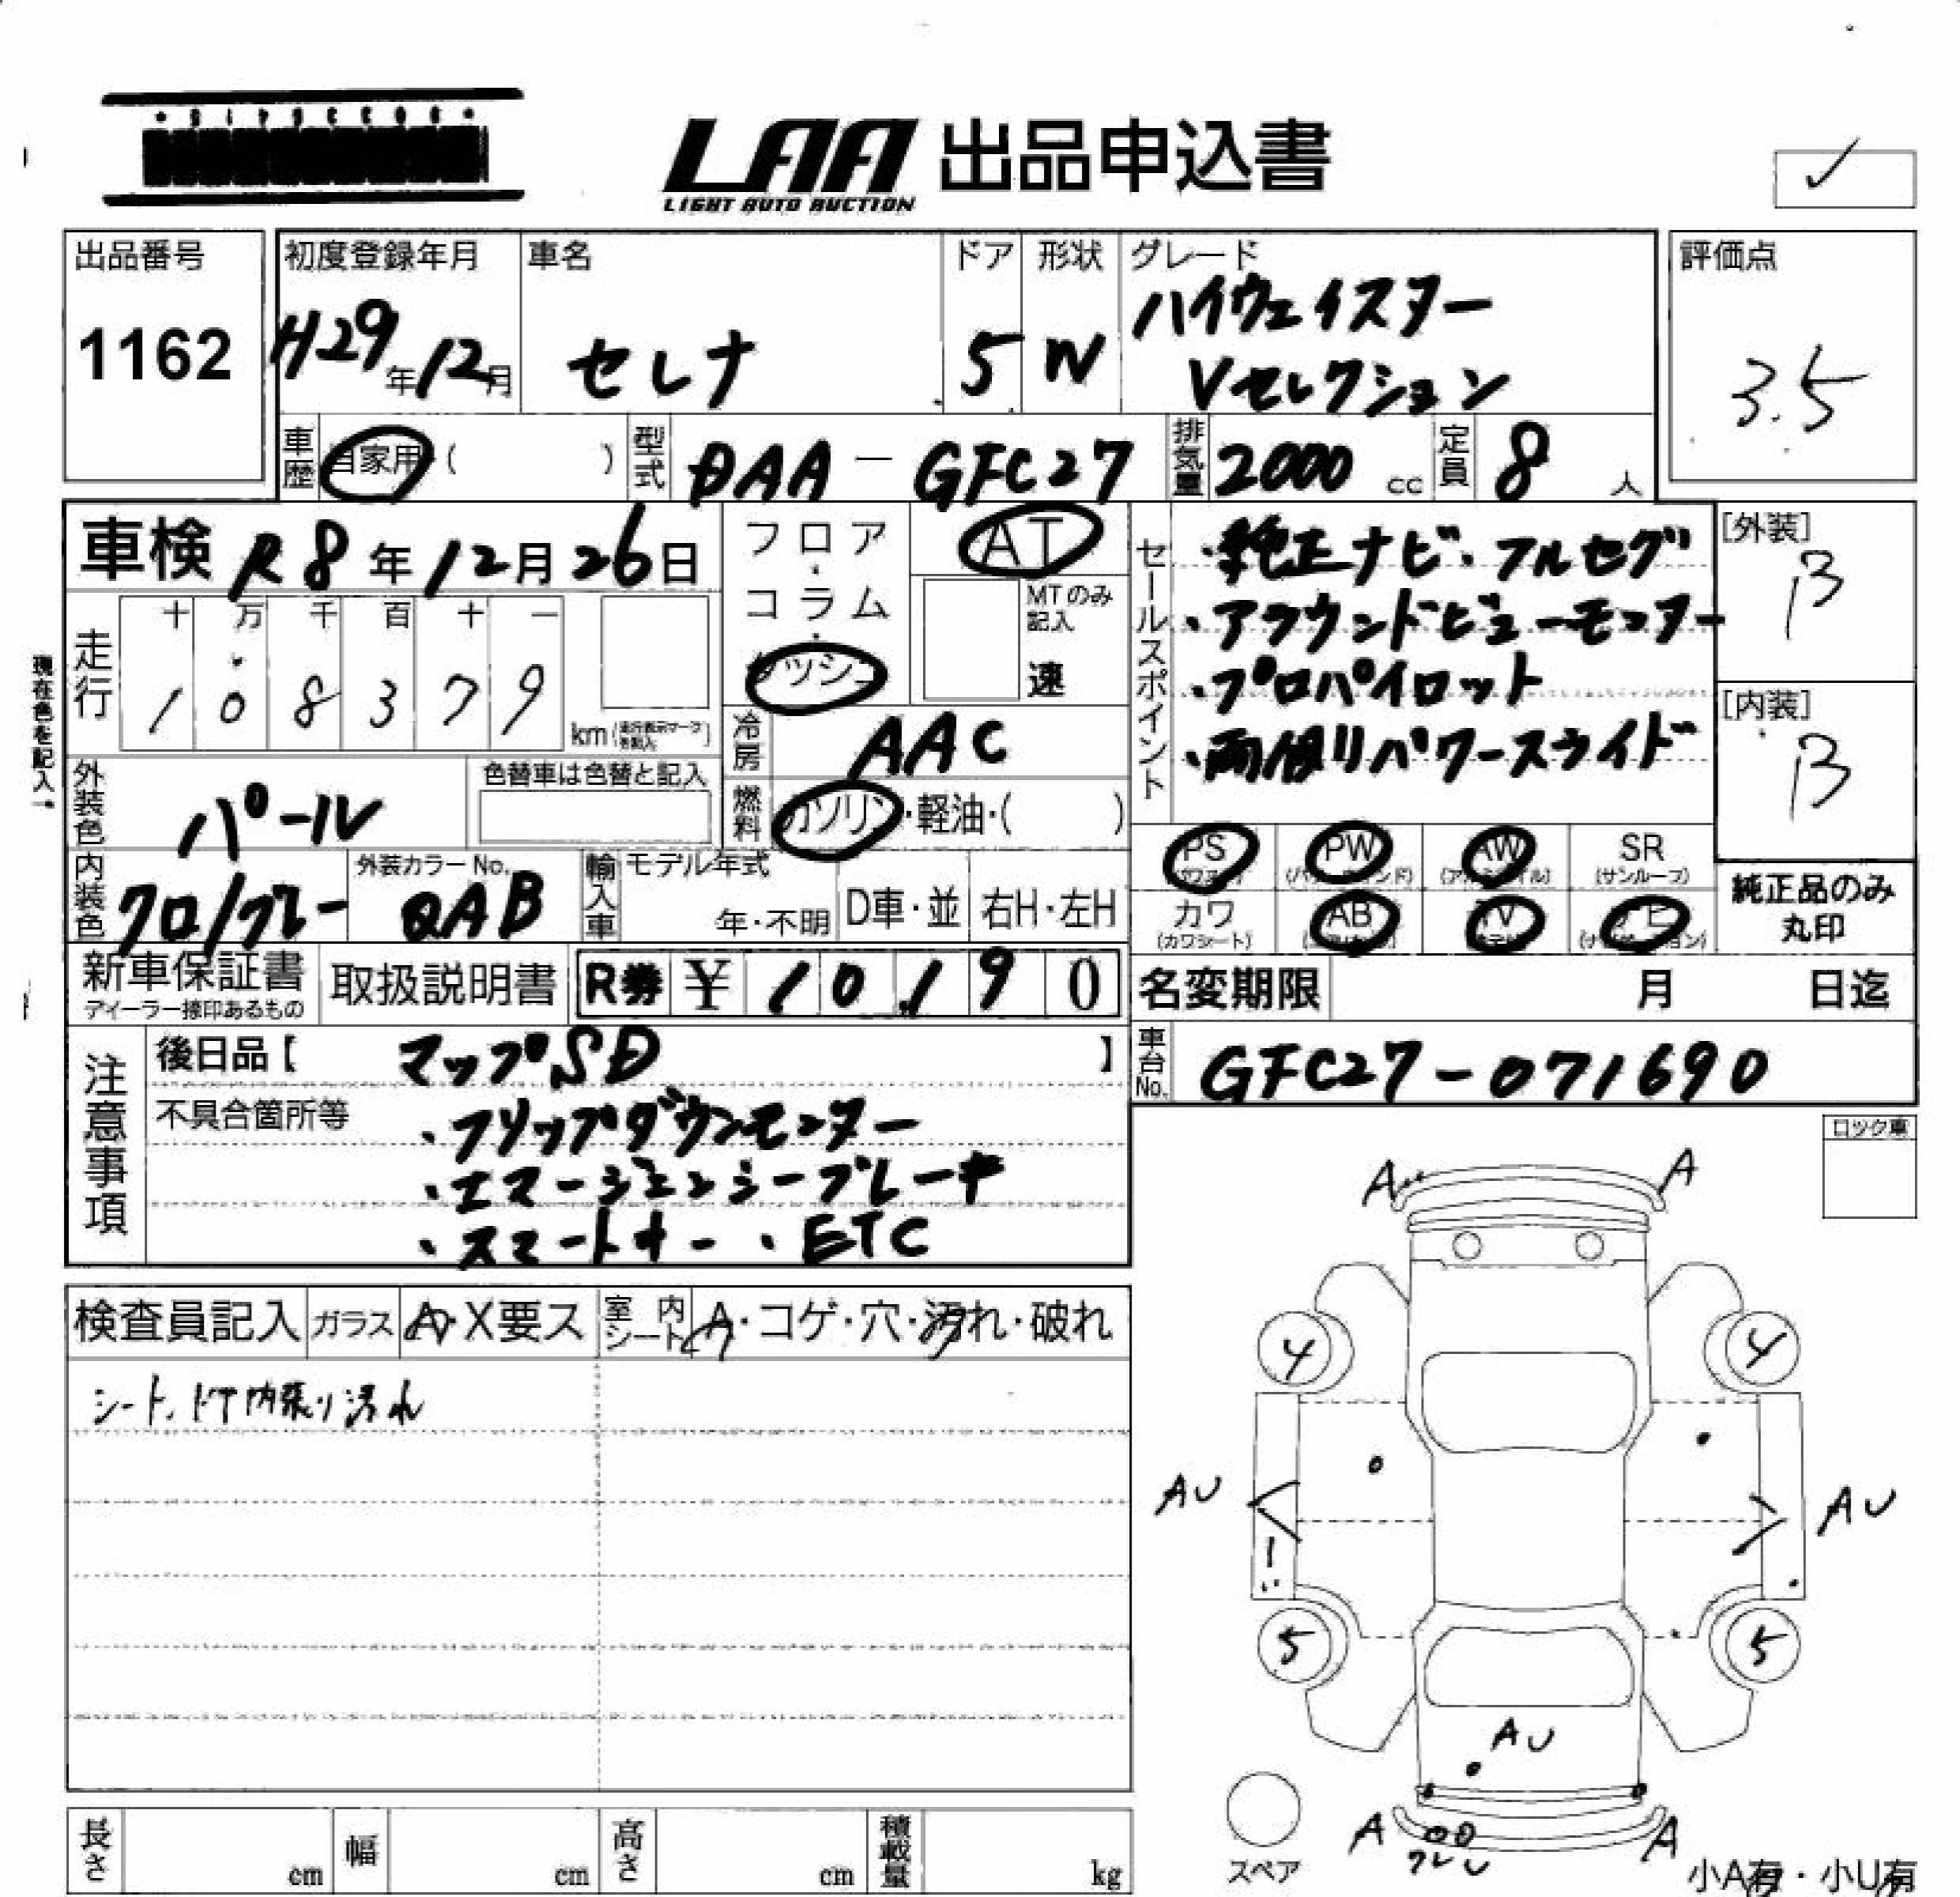 LAA 出品申込書
LIGHT AUTO AUCTION
✓
出品番号 初度登録年月 車名 ドア 形状 グレード 評価点
1162 H29年12月 セレナ 5 W ハイウェイスター
Vセレクション 3.5
車歴 自家用・( ) 型式 DAA-GFC27 排気量 2000 cc 定員 8 人
車検 R8年12月26日
フロア・コラム・ダッシュ
AT
MTのみ記入
速
セールスポイント
・純正ナビ・フルセグ
・アラウンドビューモニター
・プロパイロット
・両側パワースライド
[外装]
B
[内装]
B
現在色を記入→
走行 十 万 千 百 十 一
1 0 8 3 7 9
km(走行表示マークを記入)
冷房 AAC
外装色 パール 色替車は色替と記入
燃料 ガソリン・軽油・( )
内装色 クロ/グレー 外装カラーNo. QAB
輸入車 モデル年式 年・不明 D車・並 右H・左H
PS PW AW SR
(パワステ) (パワーウィンド) (アルミホイル) (サンルーフ)
カワ AB TV ナビ
(カワシート)
純正品のみ
丸印
新車保証書 取扱説明書 R券 ¥ 10,190
ディーラー捺印あるもの
名変期限 月 日迄
車台No. GFC27-071690
注意事項
後日品【 マップSD 】
不具合箇所等 ・フリップダウンモニター
・エマージェンシーブレーキ
・スマートキー ・ETC
ロック車
検査員記入 ガラス A・X要ス 室内シート A・コゲ・穴・汚れ・破れ
シート、ドア内張り汚れ
A A
4 4
AU AU
5 5
AU
A A
スペア
小A有・小U有
長さ cm 幅 cm 高さ cm 積載量 kg